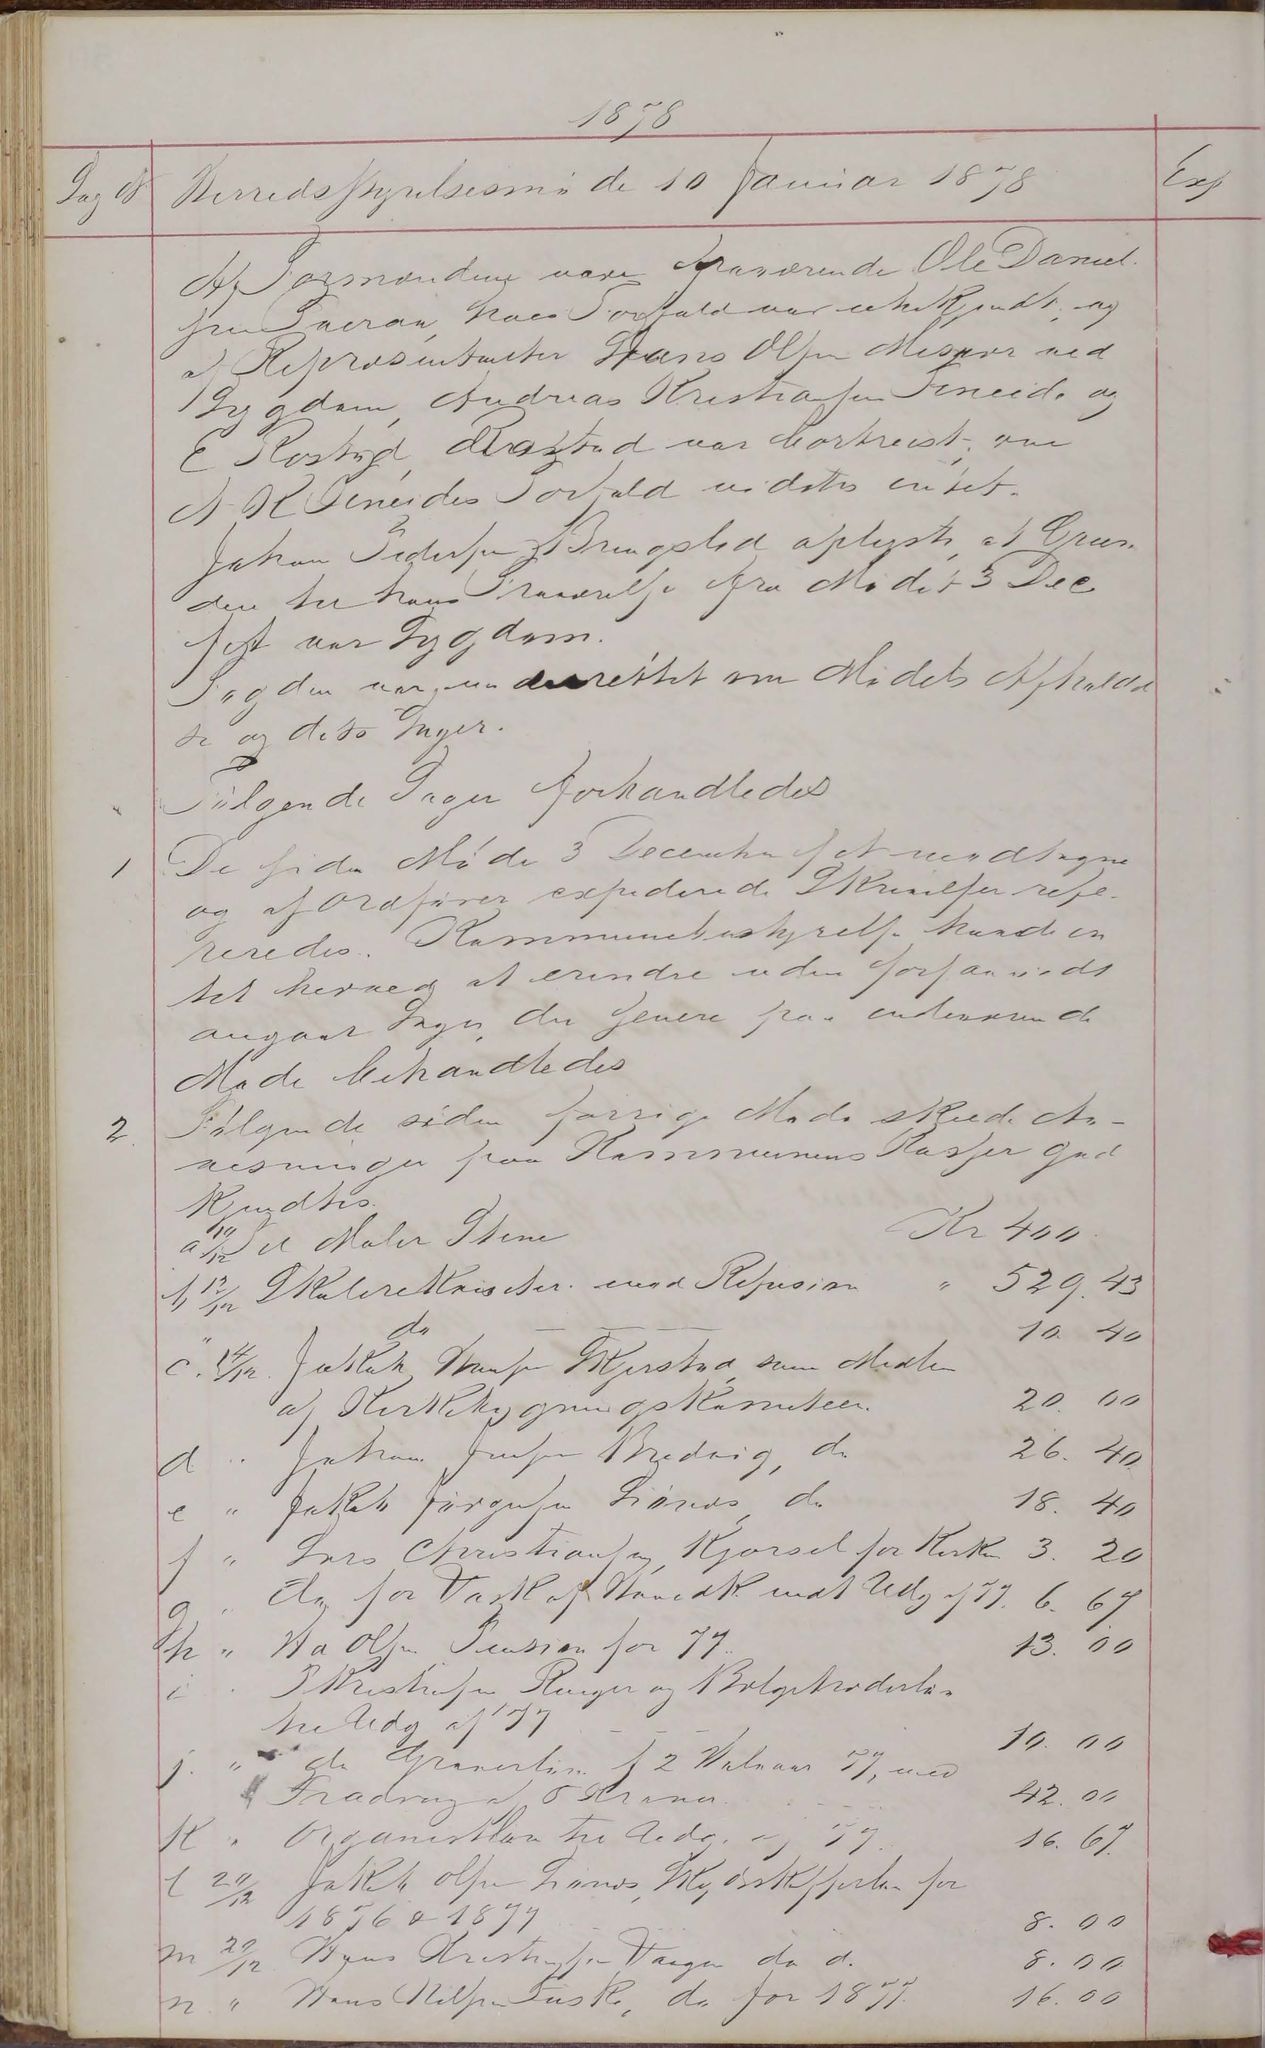 1878
Sag № Herredsstyrelsesmöde 10 Januar 1878 Exp
Af Formændene vare fraværende Ole Daniel-
sen Sneran, hvis Forfald var ubekjendt, og
af Repræsentanter Hans Olsen Misvær ved
Sygdom, Andreas Kristiansen Fineide og
E Rostad, Rostad var bortreist, om
A K Fineides Forfald vidstes intet.
Johan Pedersen Bringslid oplyste, at Grun-
den til hans Fraværelse fra Mödet 3 Dec
sidst var Sygdom.
Fogden var underrettet om Mödets Afholdel
se og dets Sager.
Fölgende Sager forhandledes
1 De siden Möde 3 December sidst modtagne
og af Ordförer expederede Skrivelser refe-
reredes. Kommunebestyrelsen havde in
tet herved at erindre uden forsaavidt
angaar Sager, der senere paa indeværende
Möde behandledes
2. Fölgende siden forrige Möde skeede An-
visninger paa Kommunens Kasser god
kjendtes.
a 10/12 Til Maler Stene Kr 400.
b 12/12 Skolerekvisiter mod Refusion " 529. 43
" do 10. 40
c. 14/12. Jakob Hansen Skjerstad som Medlem
af Kirkebygningskomiteen. 20. 00
d " Johan Jensen Bredvig, do 26. 40
e " Jakob Jörgensen Lönes do 18. 40
f " Lars Christiansen, Kjørsel for Kirken 3. 20
g " do for Vask af Hovedk indt Udg af 77. 6. 67
h " Ha Olsen Pension for 77. 13. 00
i " P Kristensen Ringer og Bælgetræderlön
til Udg af 77 10. 00
j. " do Graverlön f 2 Halvaar 77, med
Fradrag af 5 Kroner 42. 00
k " Organistlön til Udg. af 77. 16. 67.
l 20/12 Jakob Olsen Lönes, Skydsskafferlön for
1876 & 1877 8. 00
m 20/12 Hans Kristensen Vaagen do d. 8. 00
n. " Hans Nilsen Fuske, do for 1877. 16. 00